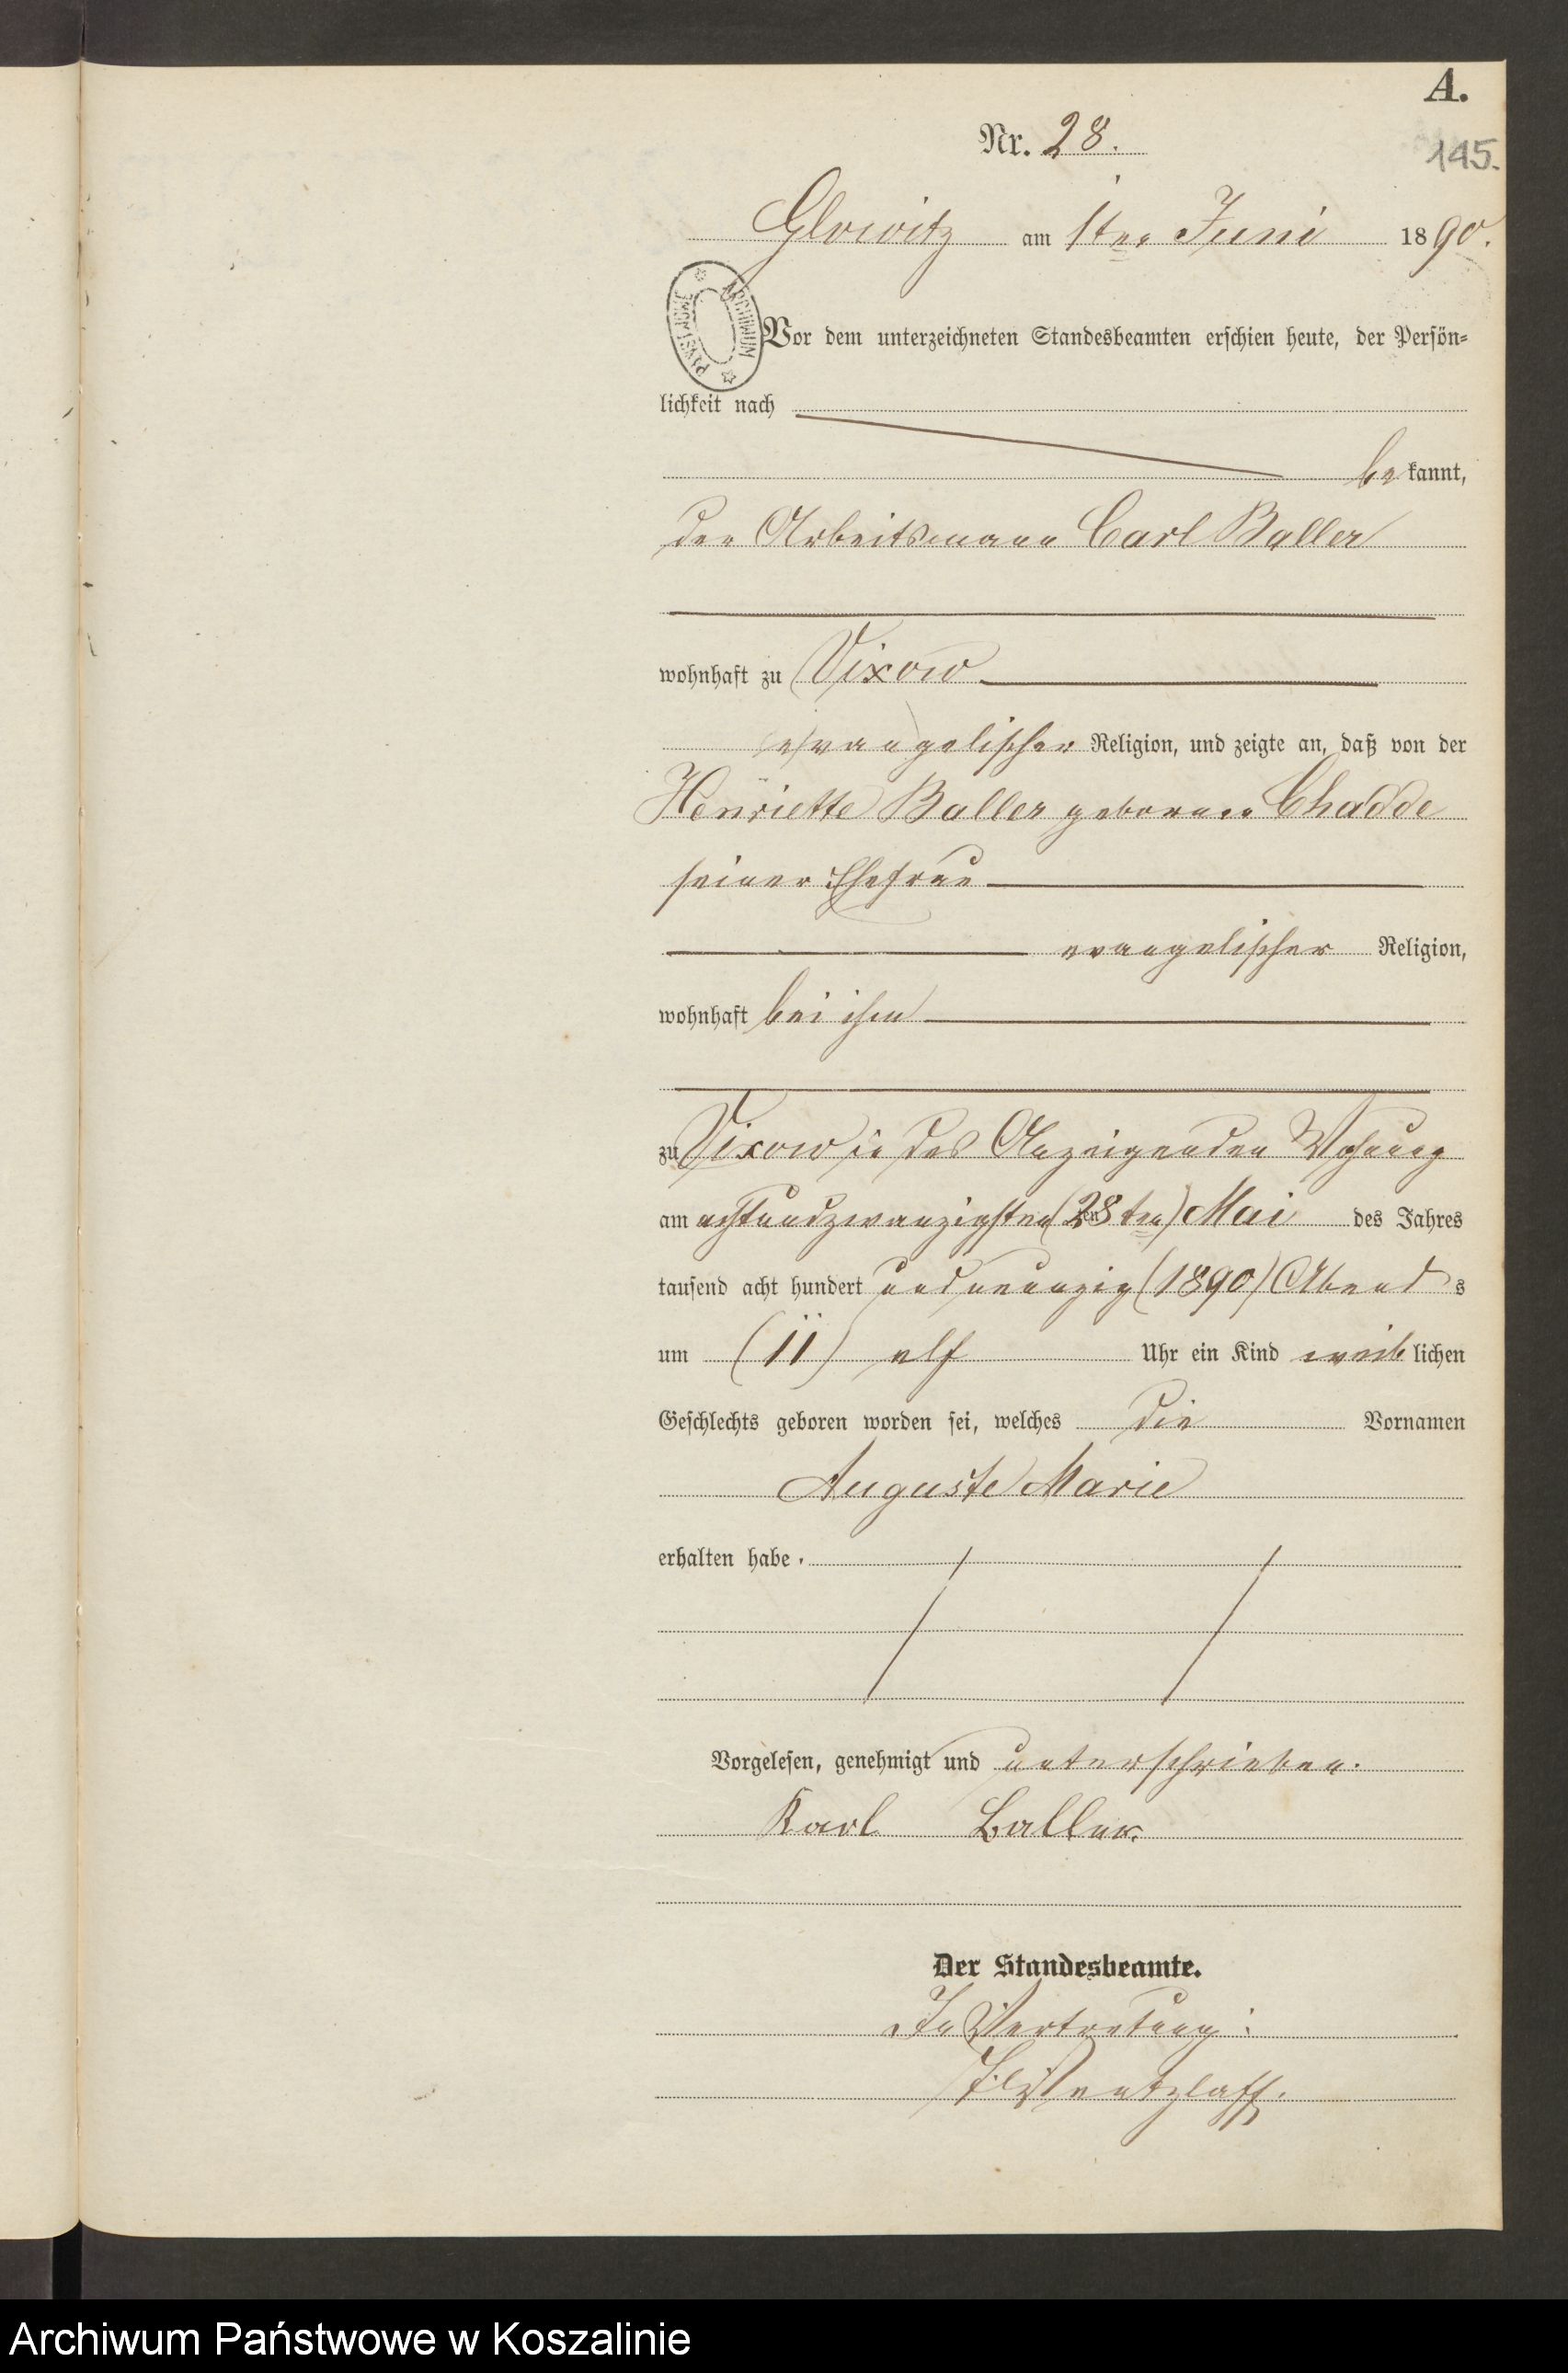 A.
Nr. 28.
145.
Glowitz am 1ten Juni 1890.
ARCHIWUM PAŃSTWOWE
Vor dem unterzeichneten Standesbeamten erschien heute, der Persön=
lichkeit nach
bekannt,
der Arbeitsmann Carl Baller
wohnhaft zu Vixow
evangelischer Religion, und zeigte an, daß von der
Henriette Baller geborene Chadde
seiner Ehefrau
evangelischer Religion,
wohnhaft bei ihm
zu Vixow in des Anzeigenden Wohnung
am achtundzwanzigsten (28ten) Mai des Jahres
tausend acht hundert und neunzig (1890) Abends
um (11) elf Uhr ein Kind weiblichen
Geschlechts geboren worden sei, welches die Vornamen
Auguste Marie
erhalten habe.
Vorgelesen, genehmigt und unterschrieben.
Karl Baller.
Der Standesbeamte.
In Vertretung:
Wentzlaff.
Archiwum Państwowe w Koszalinie